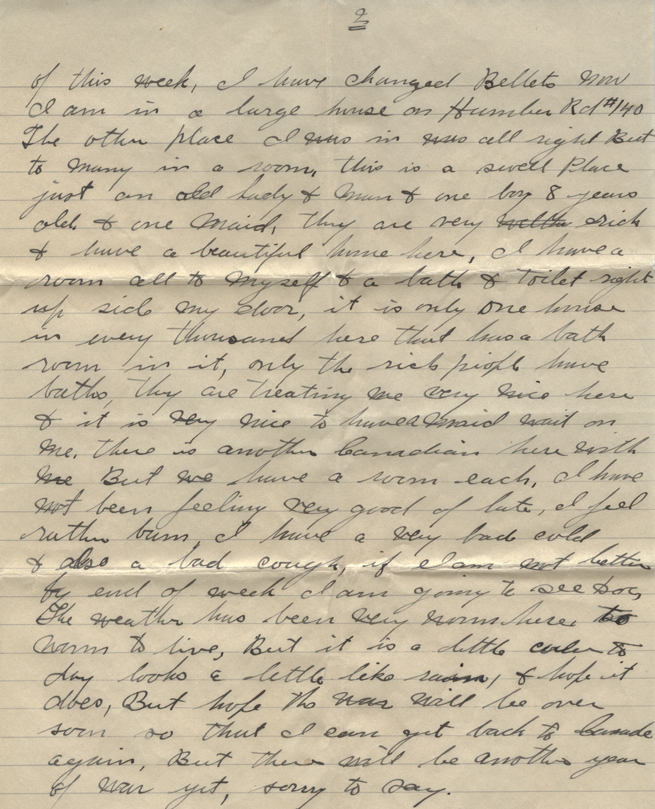 2
of this week, I have changed Bellets now
I am in a large house on Humber Rd #140
The other place I was in was all right But
to many in a room, this is a swell Place
just an old lady & man & one boy 8 years
old & one maid, they are very rich
& have a beautiful home here, I have a
room all to myself & a bath & toilet right
up side my door, it is only one house
in every thousand here that has a bath
room in it, only the rich people have
baths, they are treating me very nice here
& it is very nice to have a maid wait on
me. there is another Canadian here with
me But we have a room each, I have
not been feeling very good of late, I feel
rather bum, I have a very bad cold
& also a bad cough, if I am not better
by end of week I am going to see Doc,
The weather has been very warm here to
warm to live, But it is a little cooler to
day looks a little like rain, & hope it
does, But hope the war will be over
soon so that I can get back to Canada
again, But there will be another year
of war yet, sorry to say.